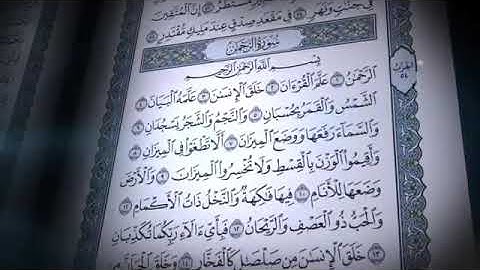 فِي جَنَّٰتٍ وَنَهَرٍ ۝٥٤ فِي مَقْعَدِ صِدْقٍ عِندَ مَلِيكٍ مُّقْتَدِرٍ ۝٥٥
سُورَةُ الرَّحْمَٰن
بِسْمِ ٱللَّهِ ٱلرَّحْمَٰنِ ٱلرَّحِيمِ
ٱلرَّحْمَٰنُ ۝١ عَلَّمَ ٱلْقُرْءَانَ ۝٢ خَلَقَ ٱلْإِنسَٰنَ ۝٣ عَلَّمَهُ ٱلْبَيَانَ ۝٤
ٱلشَّمْسُ وَٱلْقَمَرُ بِحُسْبَانٍ ۝٥ وَٱلنَّجْمُ وَٱلشَّجَرُ يَسْجُدَانِ ۝٦
وَٱلسَّمَآءَ رَفَعَهَا وَوَضَعَ ٱلْمِيزَانَ ۝٧ أَلَّا تَطْغَوْا۟ فِي ٱلْمِيزَانِ ۝٨
وَأَقِيمُوا۟ ٱلْوَزْنَ بِٱلْقِسْطِ وَلَا تُخْسِرُوا۟ ٱلْمِيزَانَ ۝٩ وَٱلْأَرْضَ
وَضَعَهَا لِلْأَنَامِ ۝١٠ فِيهَا فَٰكِهَةٌ وَٱلنَّخْلُ ذَاتُ ٱلْأَكْمَامِ ۝١١
وَٱلْحَبُّ ذُو ٱلْعَصْفِ وَٱلرَّيْحَانُ ۝١٢ فَبِأَيِّ ءَالَآءِ رَبِّكُمَا تُكَذِّبَانِ ۝١٣
خَلَقَ ٱلْإِنسَٰنَ مِن صَلْصَٰلٍ كَٱلْفَخَّارِ ۝١٤ وَخَلَقَ ٱلْجَآنَّ